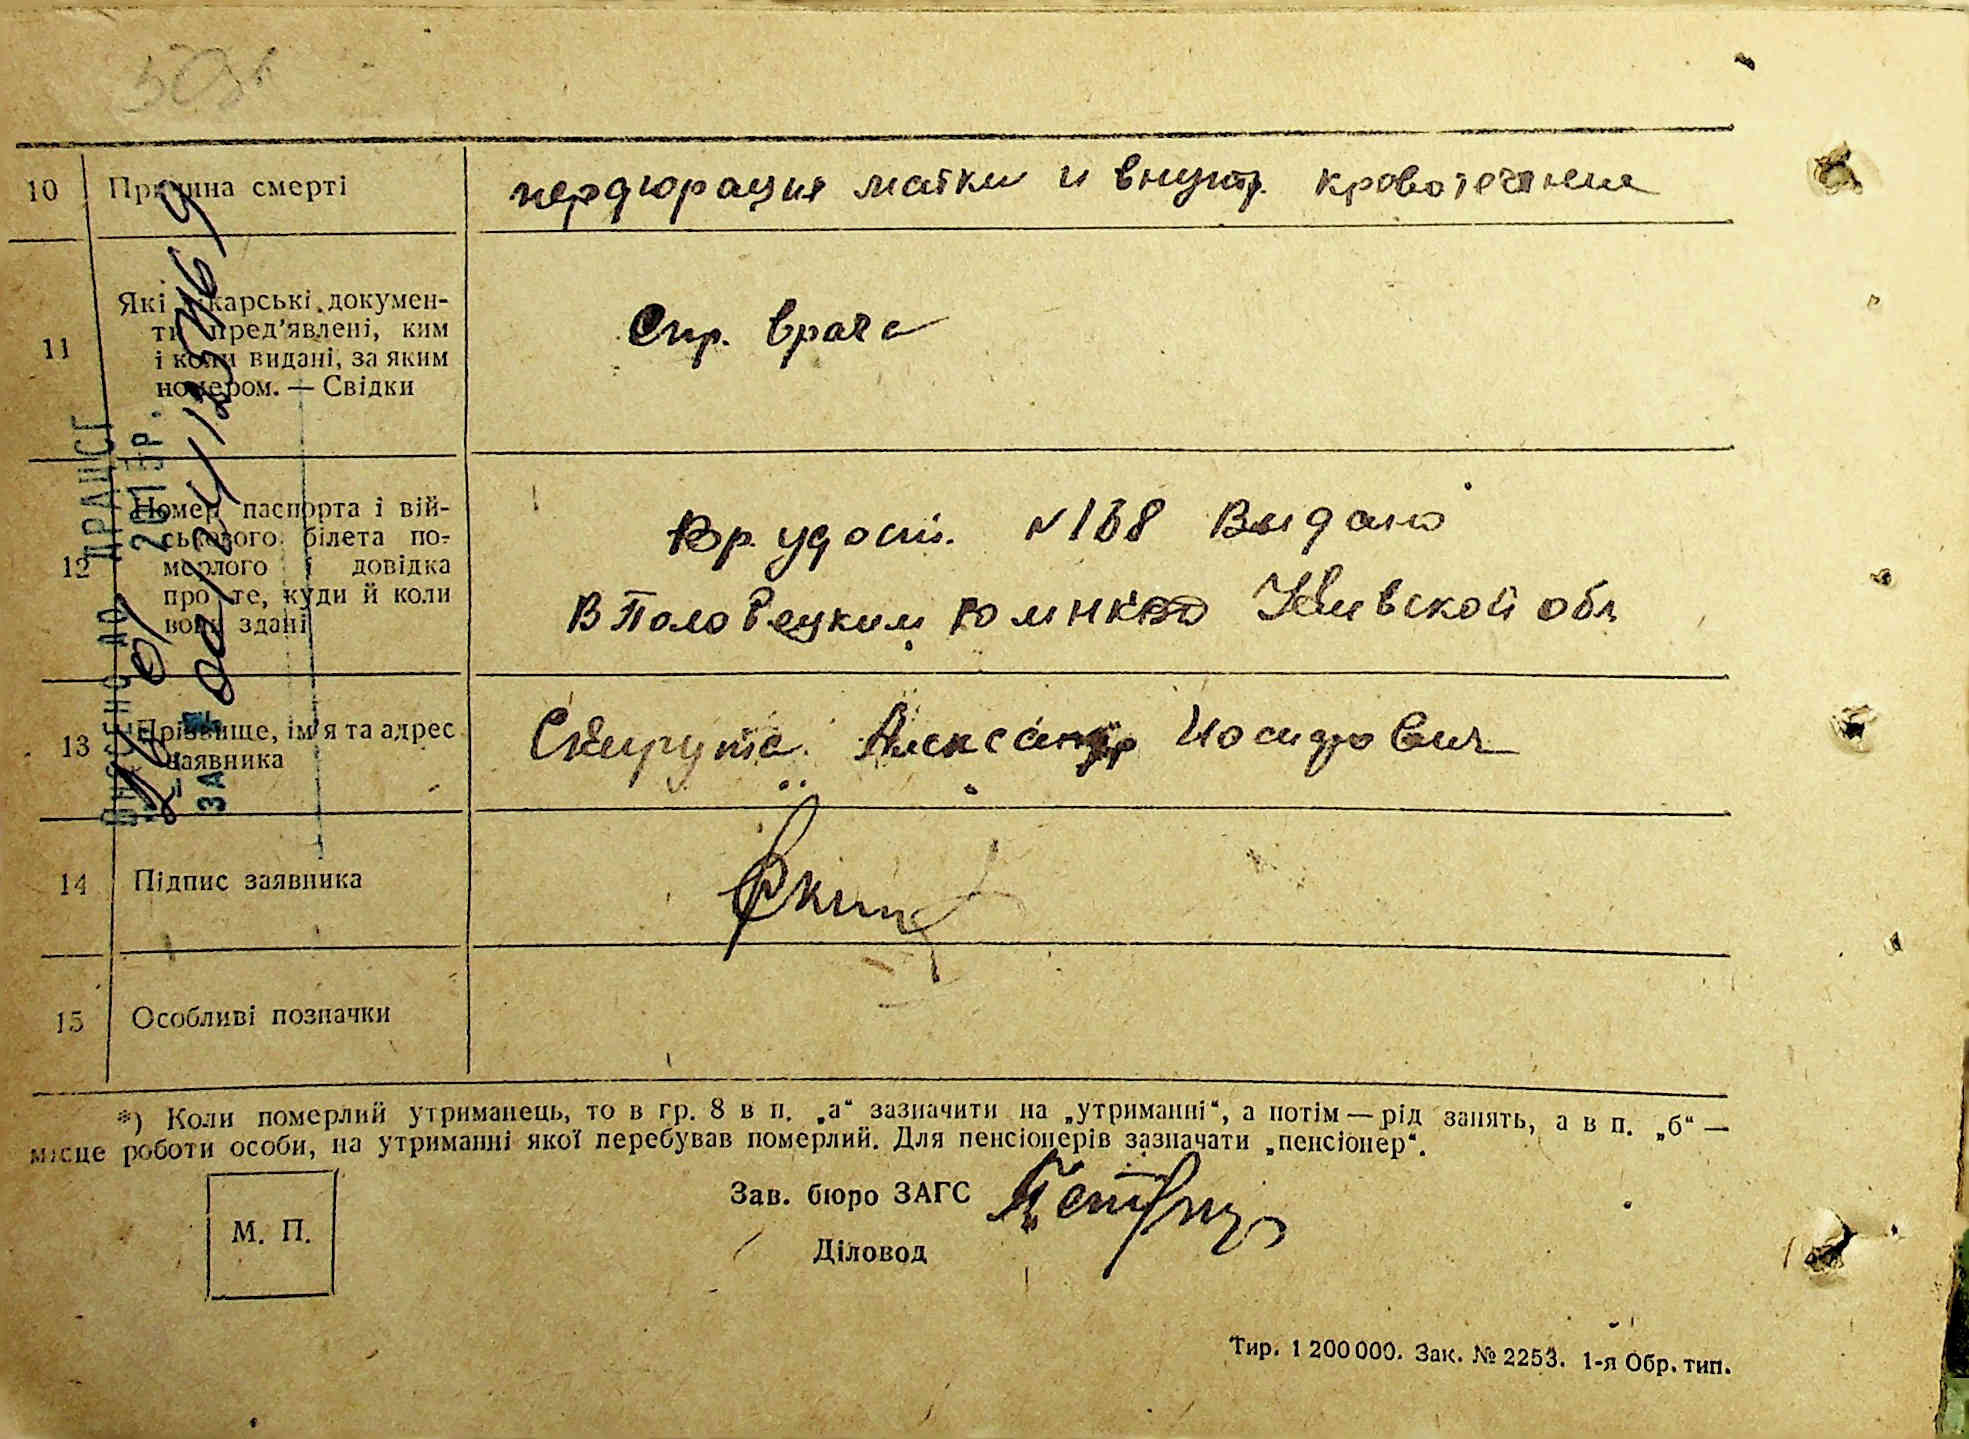 10 Причина смерті
перфорация матки и внутр. кровотечение
11 Які лікарські докумен-
ти пред'явлені, ким
і коли видані, за яким
номером. — Свідки
Спр. врача
12 Номер паспорта і вій-
ськового білета по-
мерлого і довідка
про те, куди й коли
вони здані
Вр. удост. №168 Выдано
В Половецким Ю МНКВД Киевской обл
13 Прізвище, ім'я та адрес
заявника
Скирута Александр Иосифович
14 Підпис заявника
15 Особливі позначки
ВНЕСЕНО ДО ДРАЦСГ
201 3Р.
ЗА №
*) Коли померлий утриманець, то в гр. 8 в п. „а“ зазначити на „утриманні“, а потім — рід занять, а в п. „б“ —
місце роботи особи, на утриманні якої перебував померлий. Для пенсіонерів зазначати „пенсіонер“.
М. П.
Зав. бюро ЗАГС
Діловод
Тир. 1 200 000. Зак. № 2253. 1-я Обр. тип.